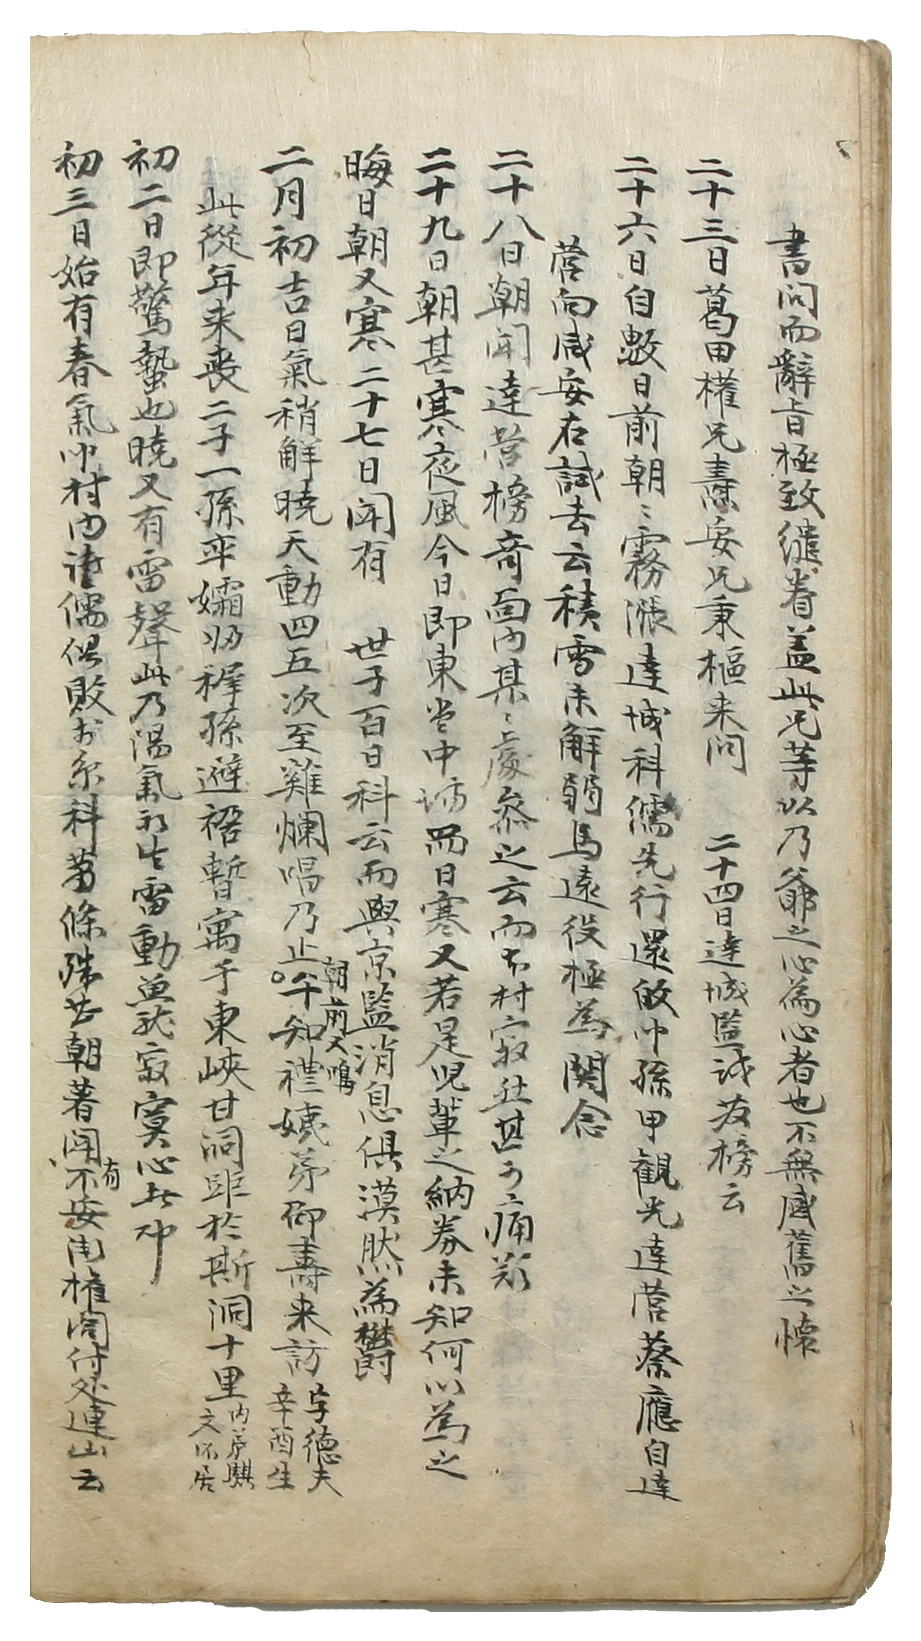 書問而辭旨極致繾眷盖此兄等以乃爺之心爲心者也不無感舊之懷
二十三日葛田權兄壽安兄秉樞来問　二十四日達城監試友榜云
二十六日自數日前朝〻霧漲達城科儒先行還皈冲孫甲觀光達營蔡應自達
營向咸安右試去云積雪未解弱馬遠役極爲関念
二十八日朝聞達營榜奇面內某〻處叅之云而本村寂然甚可痛歎
二十九日朝甚寒夜風今日即東堂中場而日寒又若是児輩之納券未知何以爲之
晦日朝又寒二十七日聞有　世子百日科云而與京監消息俱漠然爲欝
二月初吉日氣稍解曉天動四五次至雞爛唱乃止午知禮姨弟御壽来訪
朝前又鳴
字德夫
辛酉生
此從年来喪二子一孫率孀婦稺孫避寓暫寓于東峽甘洞距於斯洞十里
內弟騏
文所居
初二日即驚蟄也曉又有雷聲此乃陽氣初生雷動魚龍寂寞心在
初三日始有春氣冲村內諸儒俱敗於科朝著聞有不安權閣付处連山云